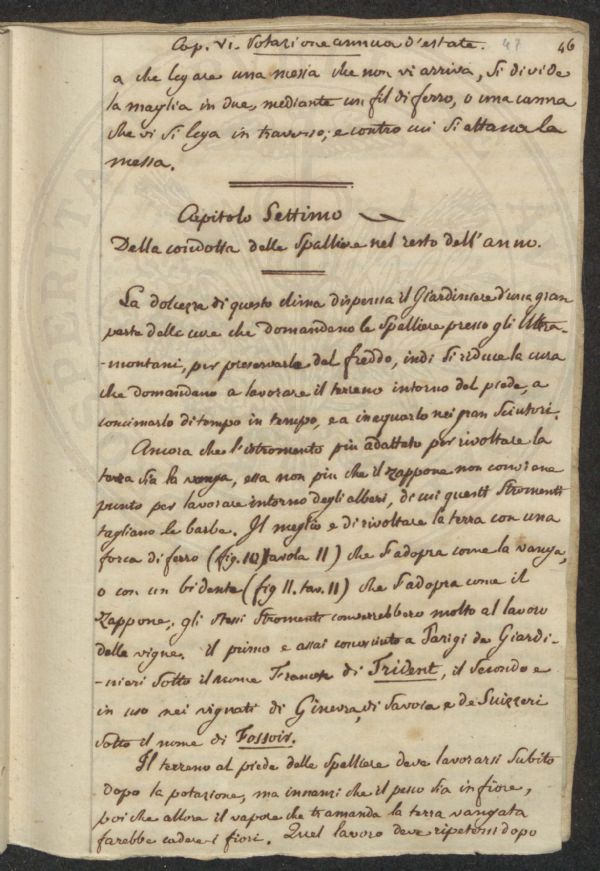 Cap. VI. Potazione annua d'estate. 47 46
a che legare una messa che non vi arriva, si divide
la maglia in due, mediante un fil di ferro, o una canna
che vi si lega in traverso; e contro cui si attacca la
messa.
Capitolo Settimo
Della condotta delle Spalliere nel resto dell'anno.
La dolcezza di questo clima dispensa il Giardiniere d'una gran
parte delle cure che domandano le Spalliere presso gli Ultra-
-montani, per preservarle dal freddo, indi si riduce la cura
che domandano a lavorare il terreno intorno del piede, a
concimarlo di tempo in tempo, e a inaquarlo nei gran Sciutori.
Ancora che l'istromento più adattato per rivoltare la
terra sia la vanga, essa non più che il zappone non conviene
punto per lavorare intorno degli alberi, di cui questi stromenti
tagliano le barbe. Il meglio e di rivoltare la terra con una
forca di ferro (fig. 10 tavola 11) che s'adopra come la vanga,
o con un bidente (fig 11. tav. 11) che s'adopra come il
Zappone; gli stessi stromenti converrebbero molto al lavoro
delle vigne. il primo e assai conosciuto a Parigi da Giardi-
-nieri sotto il nome Francese di Trident, il secondo e
in uso nei vignati di Ginevra, di Savoia e de Suizzeri
sotto il nome di Fossoir.
Il terreno al piede delle spalliere deve lavorarsi subito
dopo la potazione, ma innanzi che il pesco sia in fiore,
poi che allora il vapore che tramanda la terra vangata
farebbe cadere i fiori. Quel lavoro deve ripetersi dopo